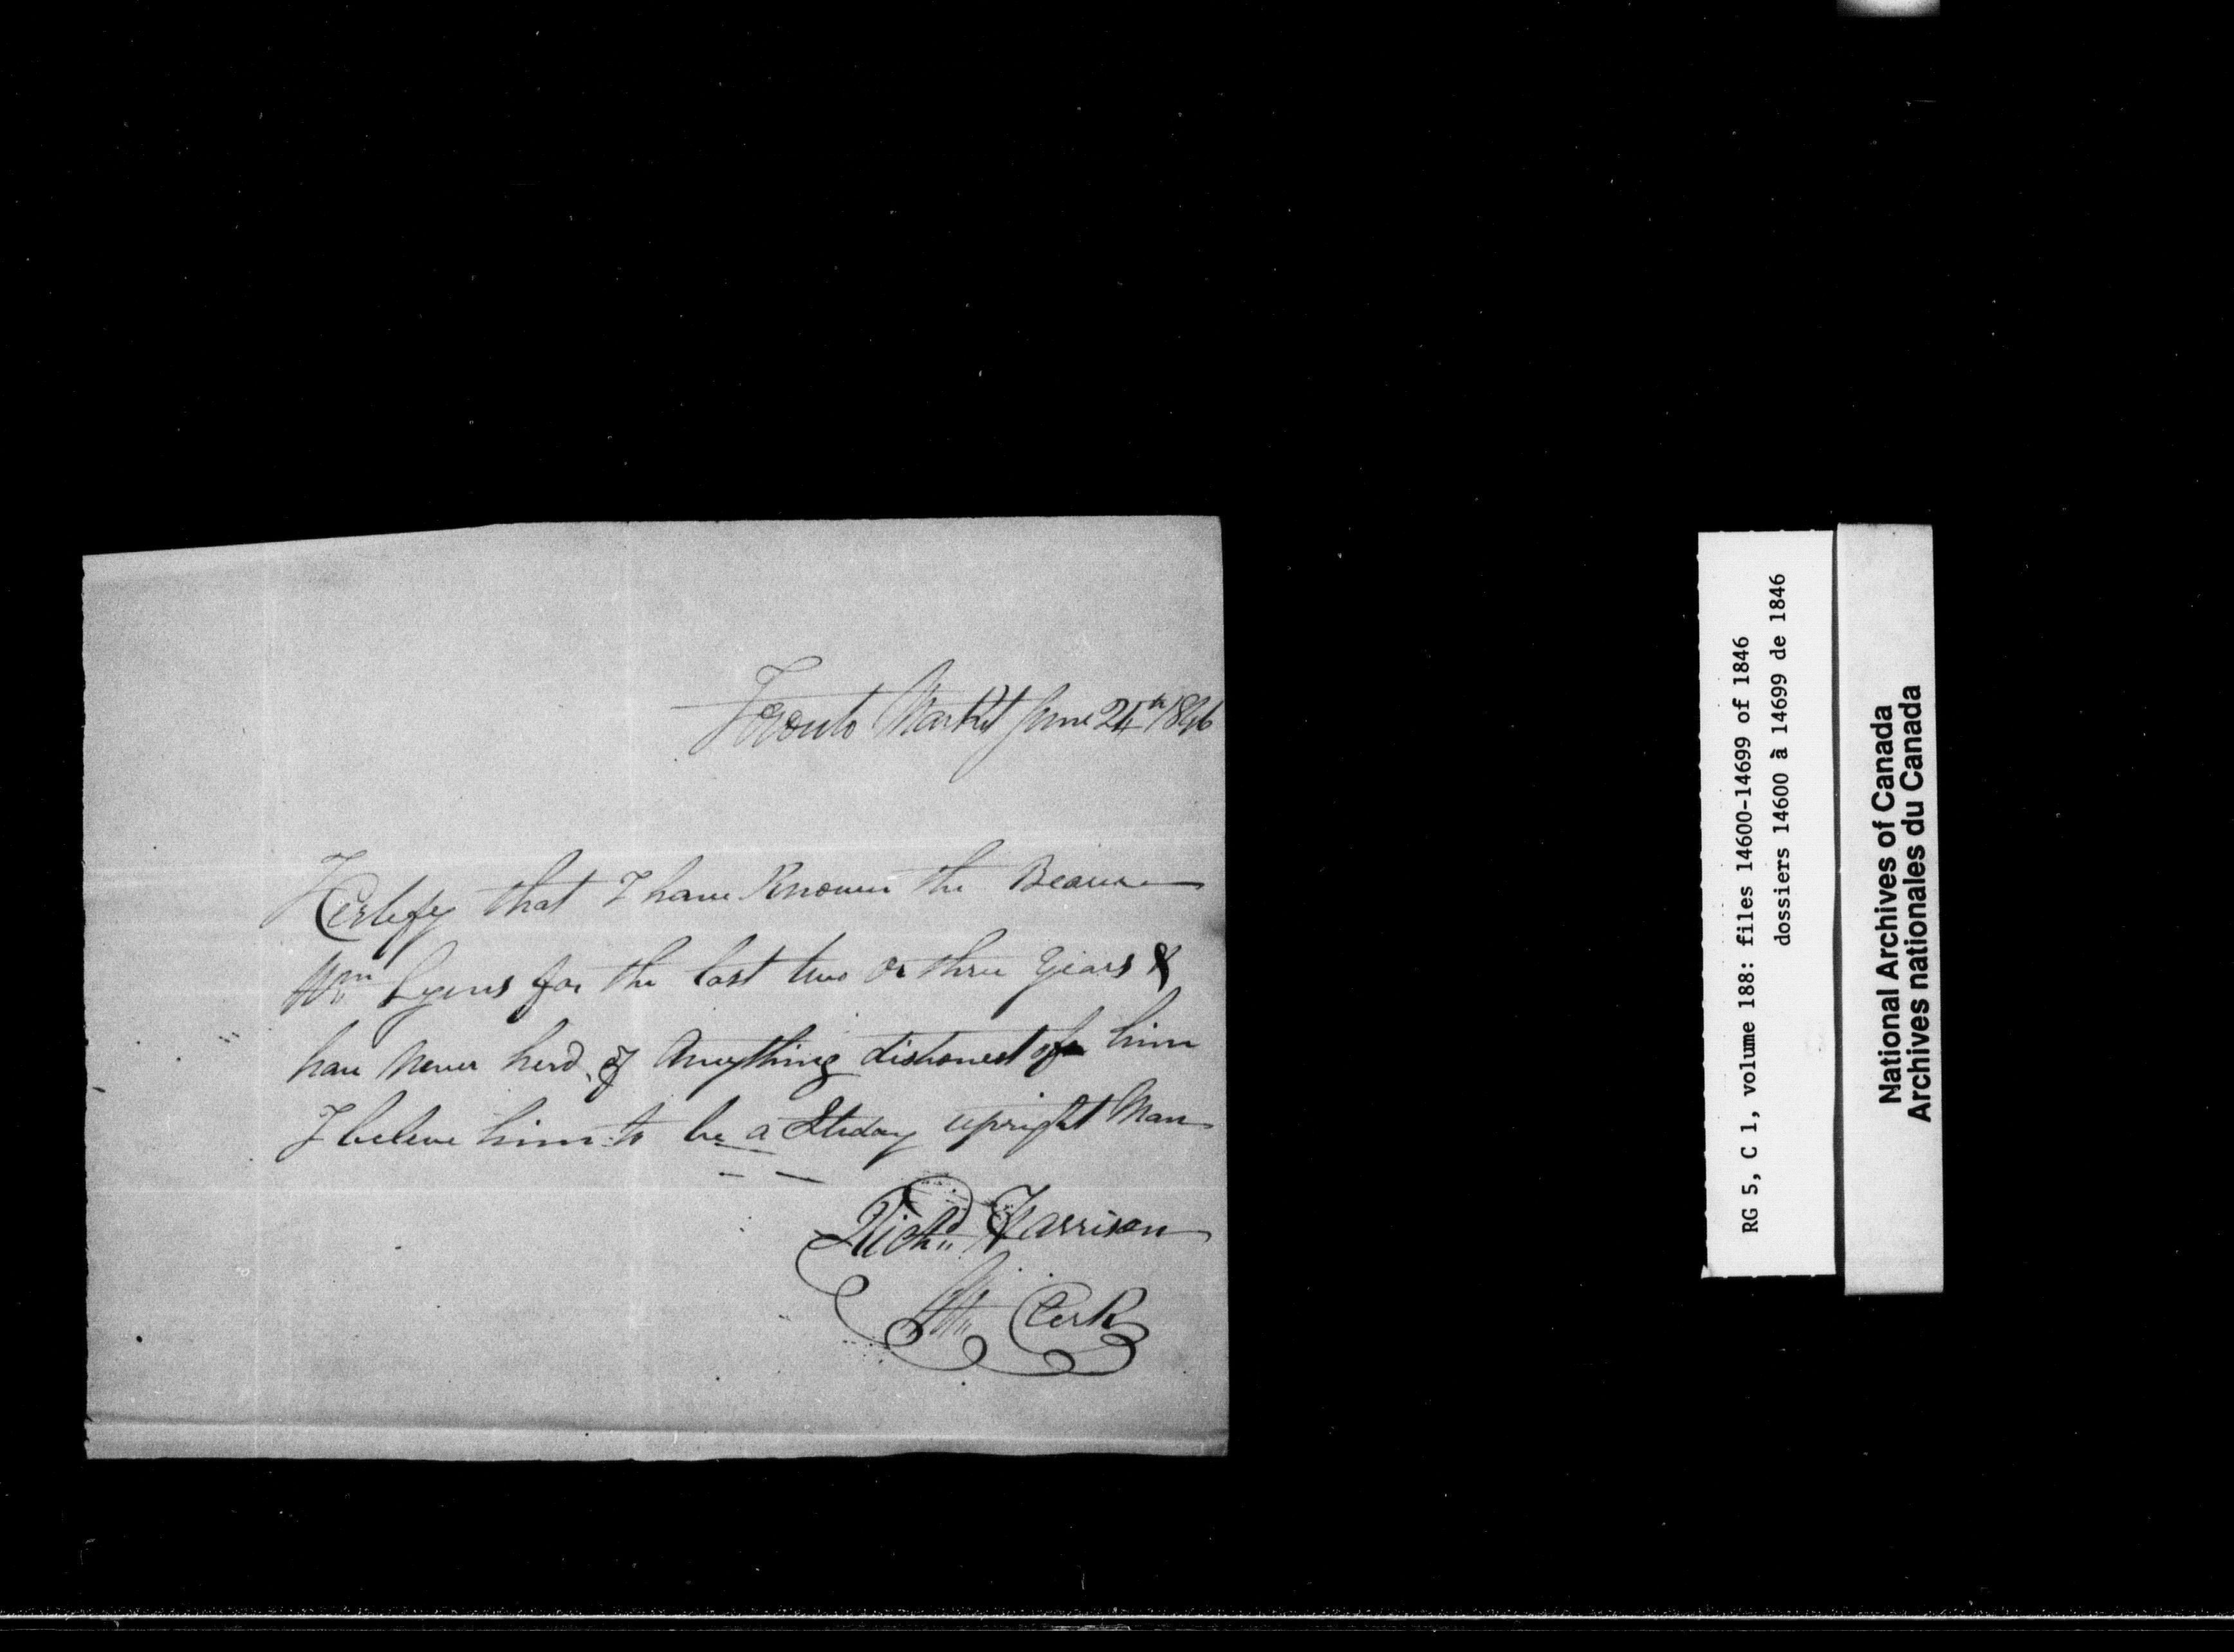 Toronto Market June 24th 1846
I Certify that I have Known the Bearer
Wm Lyons for the last two or three years &
have never herd of Anything dishonest of him
I beleve him to be a Steday upright Man
Richd Harrison
M. Clerk
RG 5, C 1, volume 188: files 14600-14699 of 1846
dossiers 14600 à 14699 de 1846
National Archives of Canada
Archives nationales du Canada